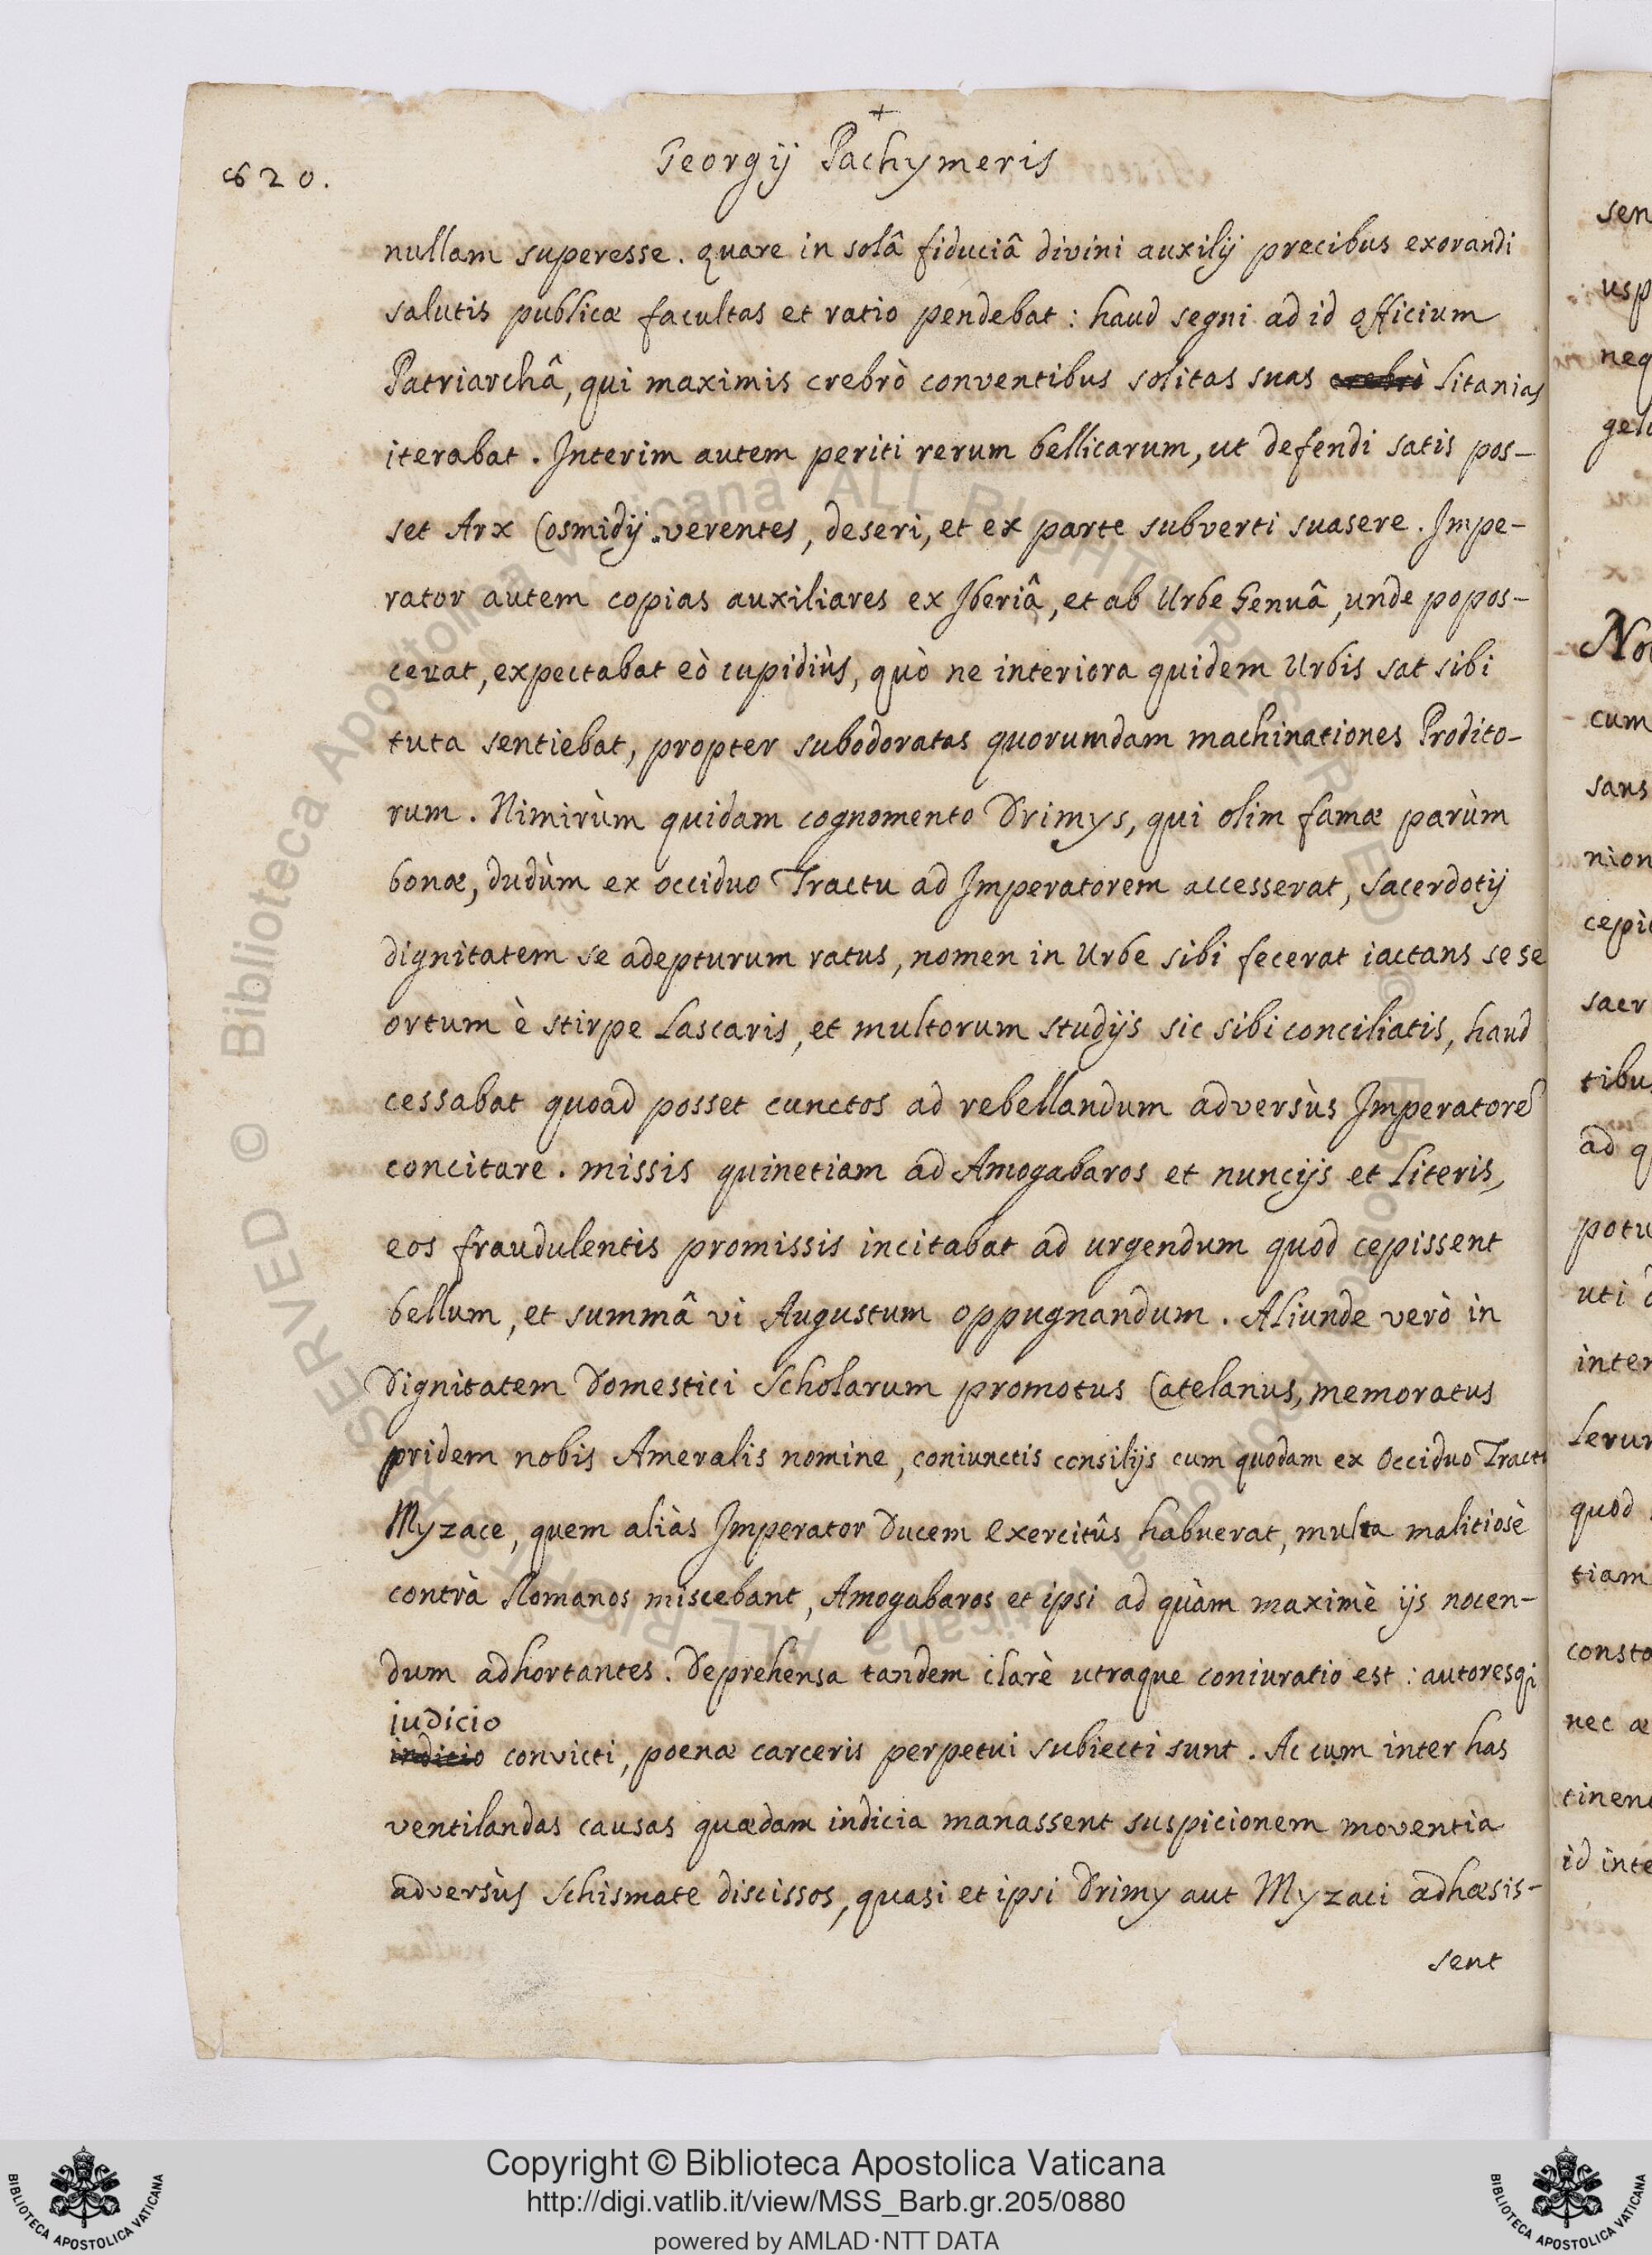 +
620.
Georgij Pachymeris
nullam superesse. quare in solâ fiduciâ divini auxilij precibus exorandi
salutis publicæ facultas et ratio pendebat: haud segni ad id officium
Patriarchâ, qui maximis crebrò conventibus solitas suas crebrò litanias
iterabat. Interim autem periti rerum bellicarum, ut defendi satis pos-
set Arx Cosmidij verentes, deseri, et ex parte subverti suasere. Impe-
rator autem copias auxiliares ex Iberiâ, et ab Urbe Genuâ, unde popos-
cerat, expectabat eò cupidiùs, quò ne interiora quidem Urbis sat sibi
tuta sentiebat, propter subodoratas quorumdam machinationes Prodito-
rum. Nimirùm quidam cognomento Drimys, qui olim famæ parùm
bonæ, dudùm ex occiduo Tractu ad Imperatorem accesserat, sacerdotij
dignitatem se adepturum ratus, nomen in Urbe sibi fecerat iactans se se
ortum è stirpe Lascaris, et multorum studijs sic sibi conciliatis, haud
cessabat quoad posset cunctos ad rebellandum adversùs Imperatorē
concitare. missis quinetiam ad Amogabaros et nuncijs et literis,
eos fraudulentis promissis incitabat ad urgendum quod cepissent
bellum, et summâ vi Augustum oppugnandum. Aliunde verò in
Dignitatem Domestici Scholarum promotus Catelanus, memoratus
pridem nobis Ameralis nomine, coniunctis consilijs cum quodam ex Occiduo Tractu
Myzace, quem aliàs Imperator Ducem exercitûs habuerat, multa malitiosè
contrà Romanos miscebant, Amogabaros et ipsi ad quàm maximè ijs nocen-
dum adhortantes. Deprehensa tandem clarè utraque coniuratio est: autoresq;
judicio
indicio convicti, poenæ carceris perpetui subiecti sunt. Ac cum inter has
ventilandas causas quædam indicia manassent suspicionem moventia
adversùs Schismate discissos, quasi et ipsi Drimy aut Myzaci adhæsis-
sent
sen
usp
neq
cum
sans
nion
sacr
ad q
potu
uti
inter
quod
tiam
consta
nec æ
id inte
Copyright © Biblioteca Apostolica Vaticana
http://digi.vatlib.it/view/MSS_Barb.gr.205/0880
powered by AMLAD·NTT DATA
BIBLIOTECA APOSTOLICA VATICANA
BIBLIOTECA APOSTOLICA VATICANA